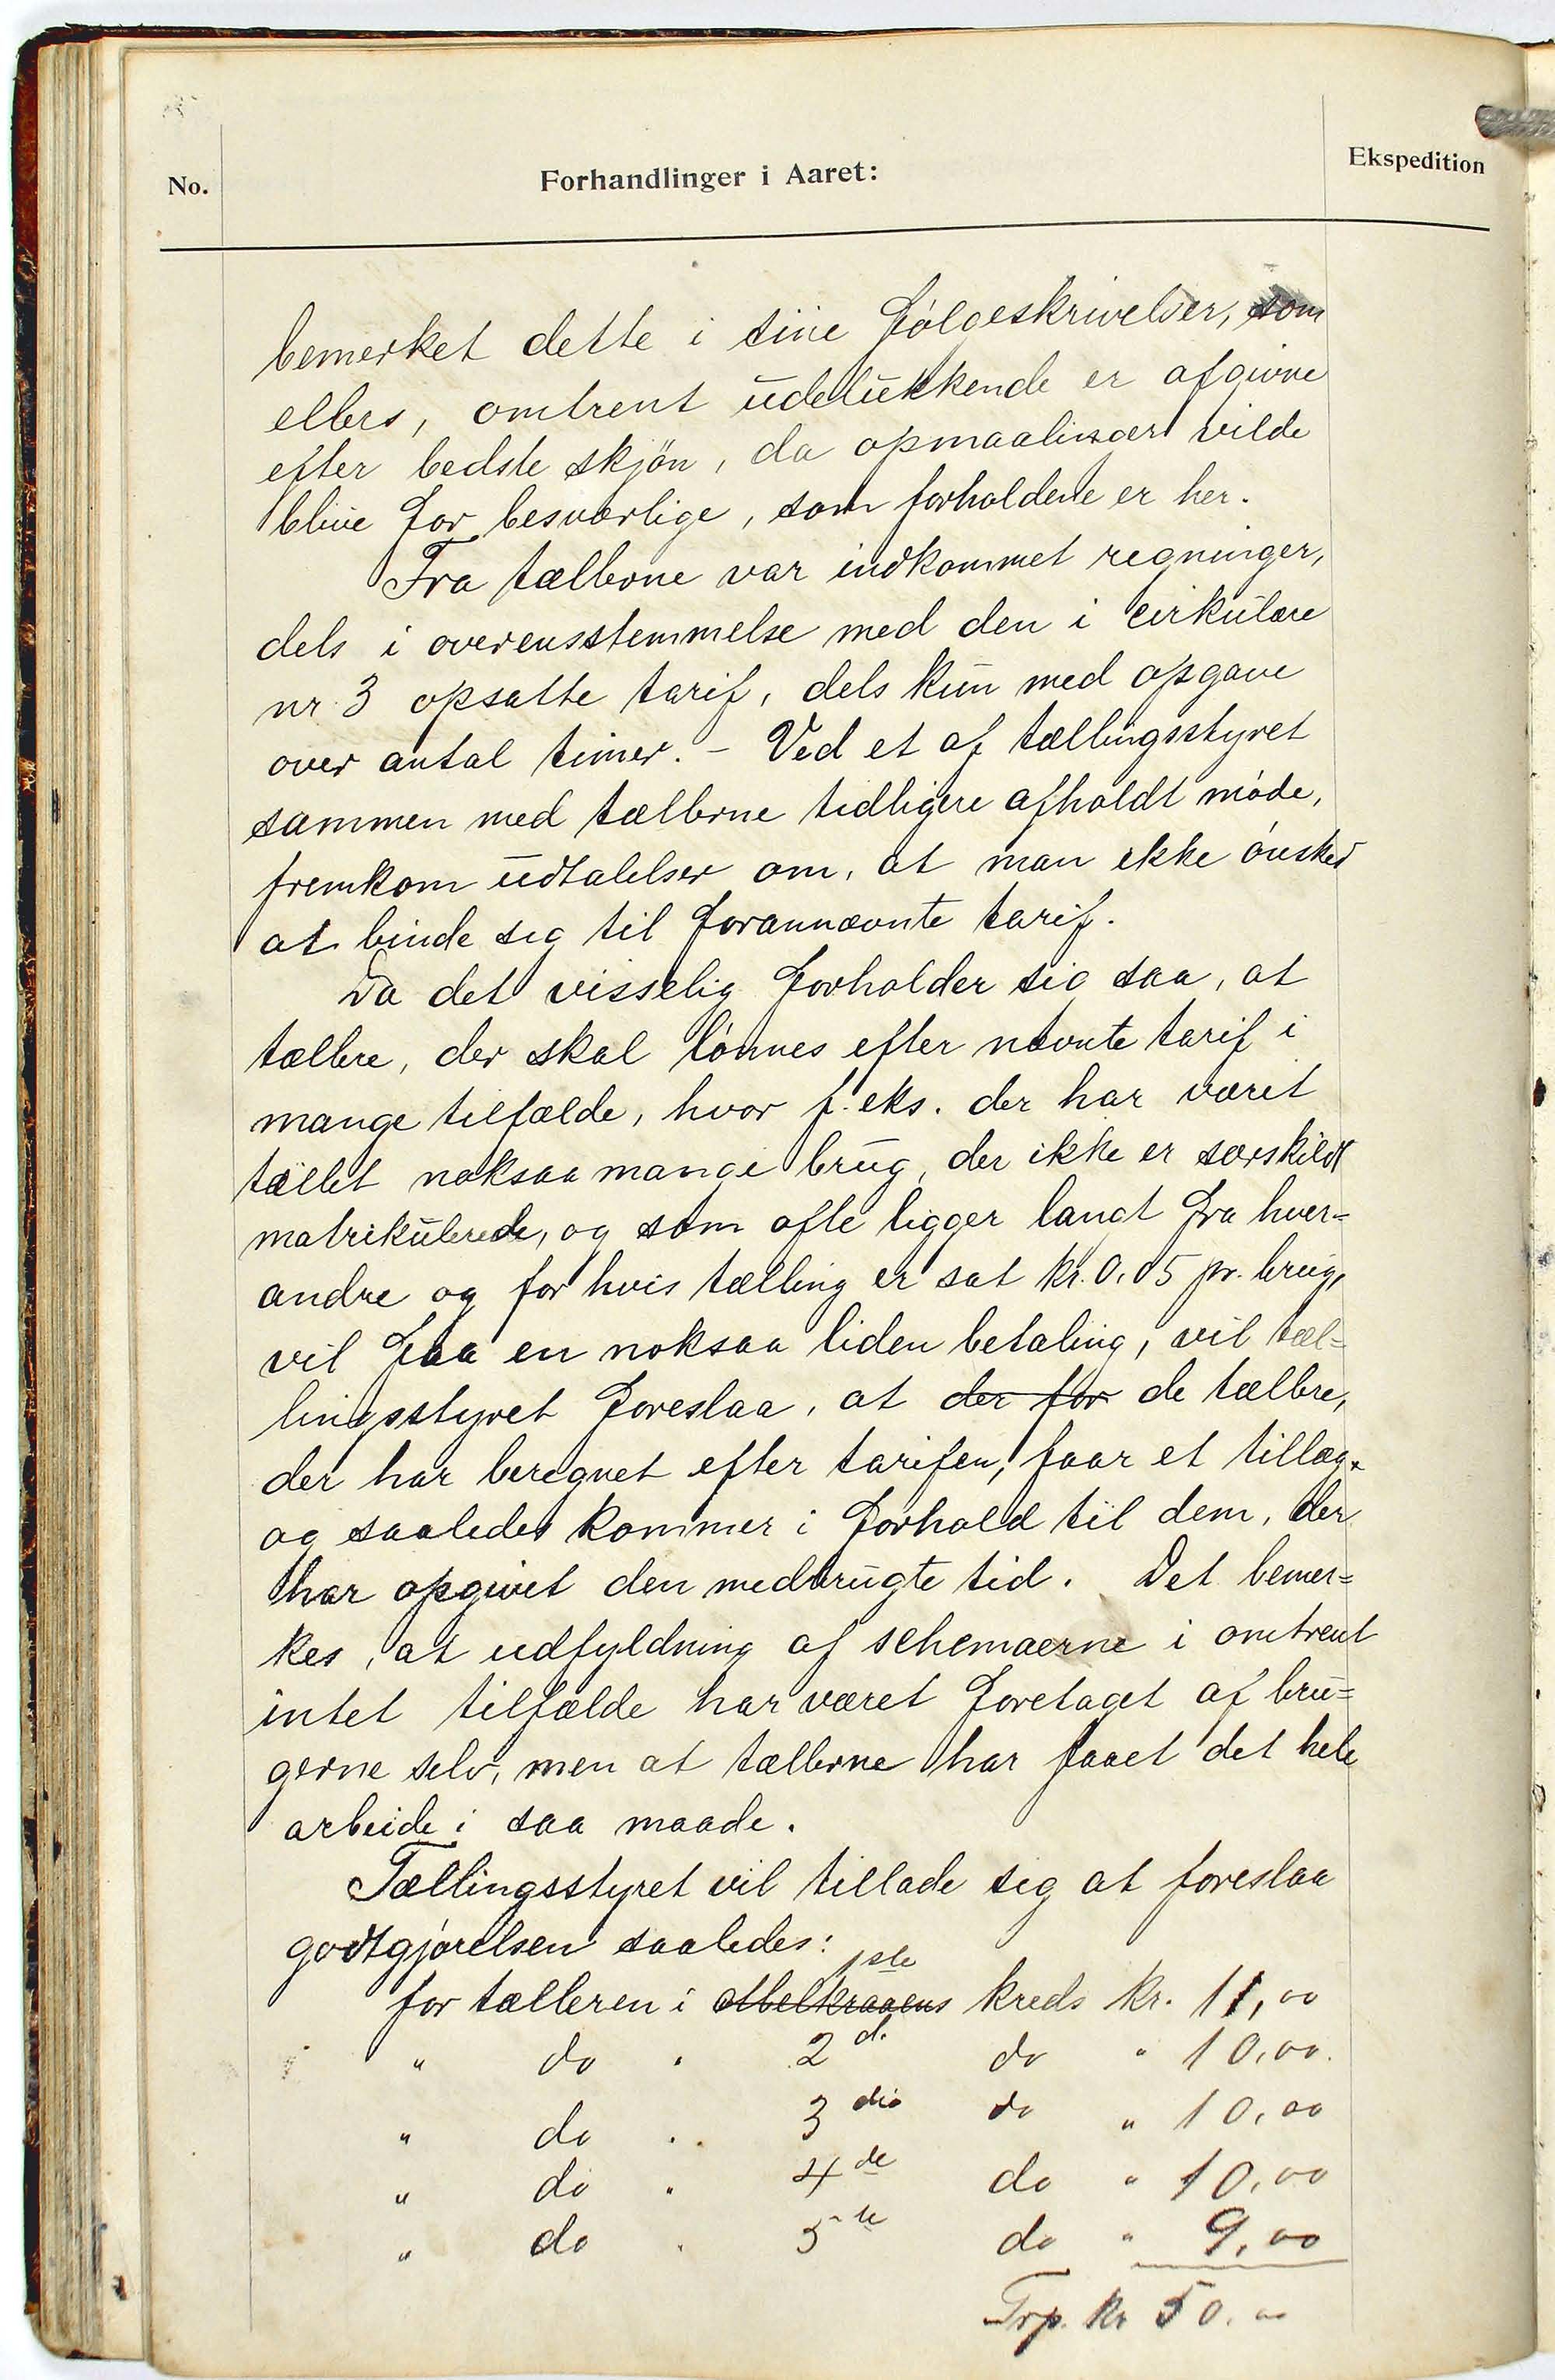 No.
Forhandlinger i Aaret:
Ekspedition
bemerket dette i sine følgeskrivelser, som
ellers, omtrent udelukkende er afgivne
efter bedste skjön, da opmaalinger vilde
blive for besværlige, som forholdene er her.
Fra tællerne var indkommet regninger,
dels i overensstemmelse med den i cirkulære
nr 3 opsatte tarif, dels kun med opgave
over antal timer. – Ved et af tællingsstyret
sammen med tællerne tidligere afholdt möde,
fremkom udtalelser om, at man ikke önsked
at binde sig til forannævnte tarif.
Da det visselig forholder sig saa, at
tællere, der skal lönnes efter nævnte tarif i
mange tilfælde, hvor f. eks. der har været
tællet noksaa mange brug, der ikke er særskildt
matrikulerede, og som ofte ligger langt fra hver=
andre og for hvis tælling er sat kr. 0,05 pr. brug,
vil faa en noksaa liden betaling, vil tæl=
lingsstyret foreslaa, at der for de tællere,
der har beregnet efter tarifen, faar et tillæg,
og saaledes kommer i forhold til dem, der
har opgivet den medbrugte tid. Det bemer=
kes, at udfyldning af schemaerne i omtrent
intet tilfælde har været foretaget af bru=
gerne selv, men at tællerne har faaet det hele
arbeide i saa maade.
Tællingsstyret vil tillade sig at foreslaa
godtgjørelsen saaledes:
1ste
for tælleren i Melkraaens kreds kr. 11,00
" do " 2d. do " 10,00.
" do " 3die do " 10,00
" do " 4de do " 10,00
" do " 5te do " 9,00
Trp. kr 50.00